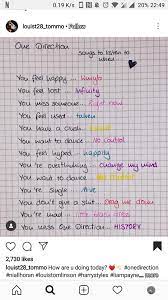 0.19 K/s 20% 22:49
louist28_tommo • Follow
One Direction
songs to listen to
when
You feel happy → WMYB
You feel lost → Infinity
You miss someone → Right now
You feel used → taken
You have a crush →
You want to dance → No control
You feel hyped → happily
You're overthinking → change my mind
You want to dance →
You're single → Alive
You don't give a shit → Drag me down
You're mad →
You miss One Direction → HISTORY
2,730 likes
louist28_tommo How are u doing today? #onedirection
#niallhoran #louistomlinson #harrystyles #liampayne